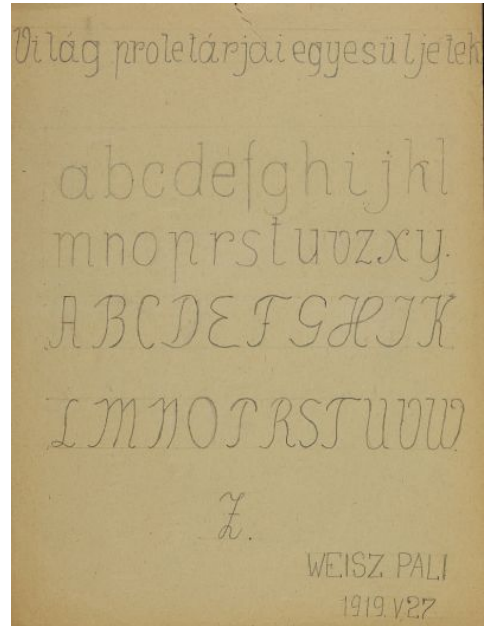 Világ proletárjai egyesüljetek
abcdefghijkl
mnoprstuvzxy.
ABCDEFGHIK
LMNOPRSTUVW
Z.
WEISZ PALI
1919.V.27.